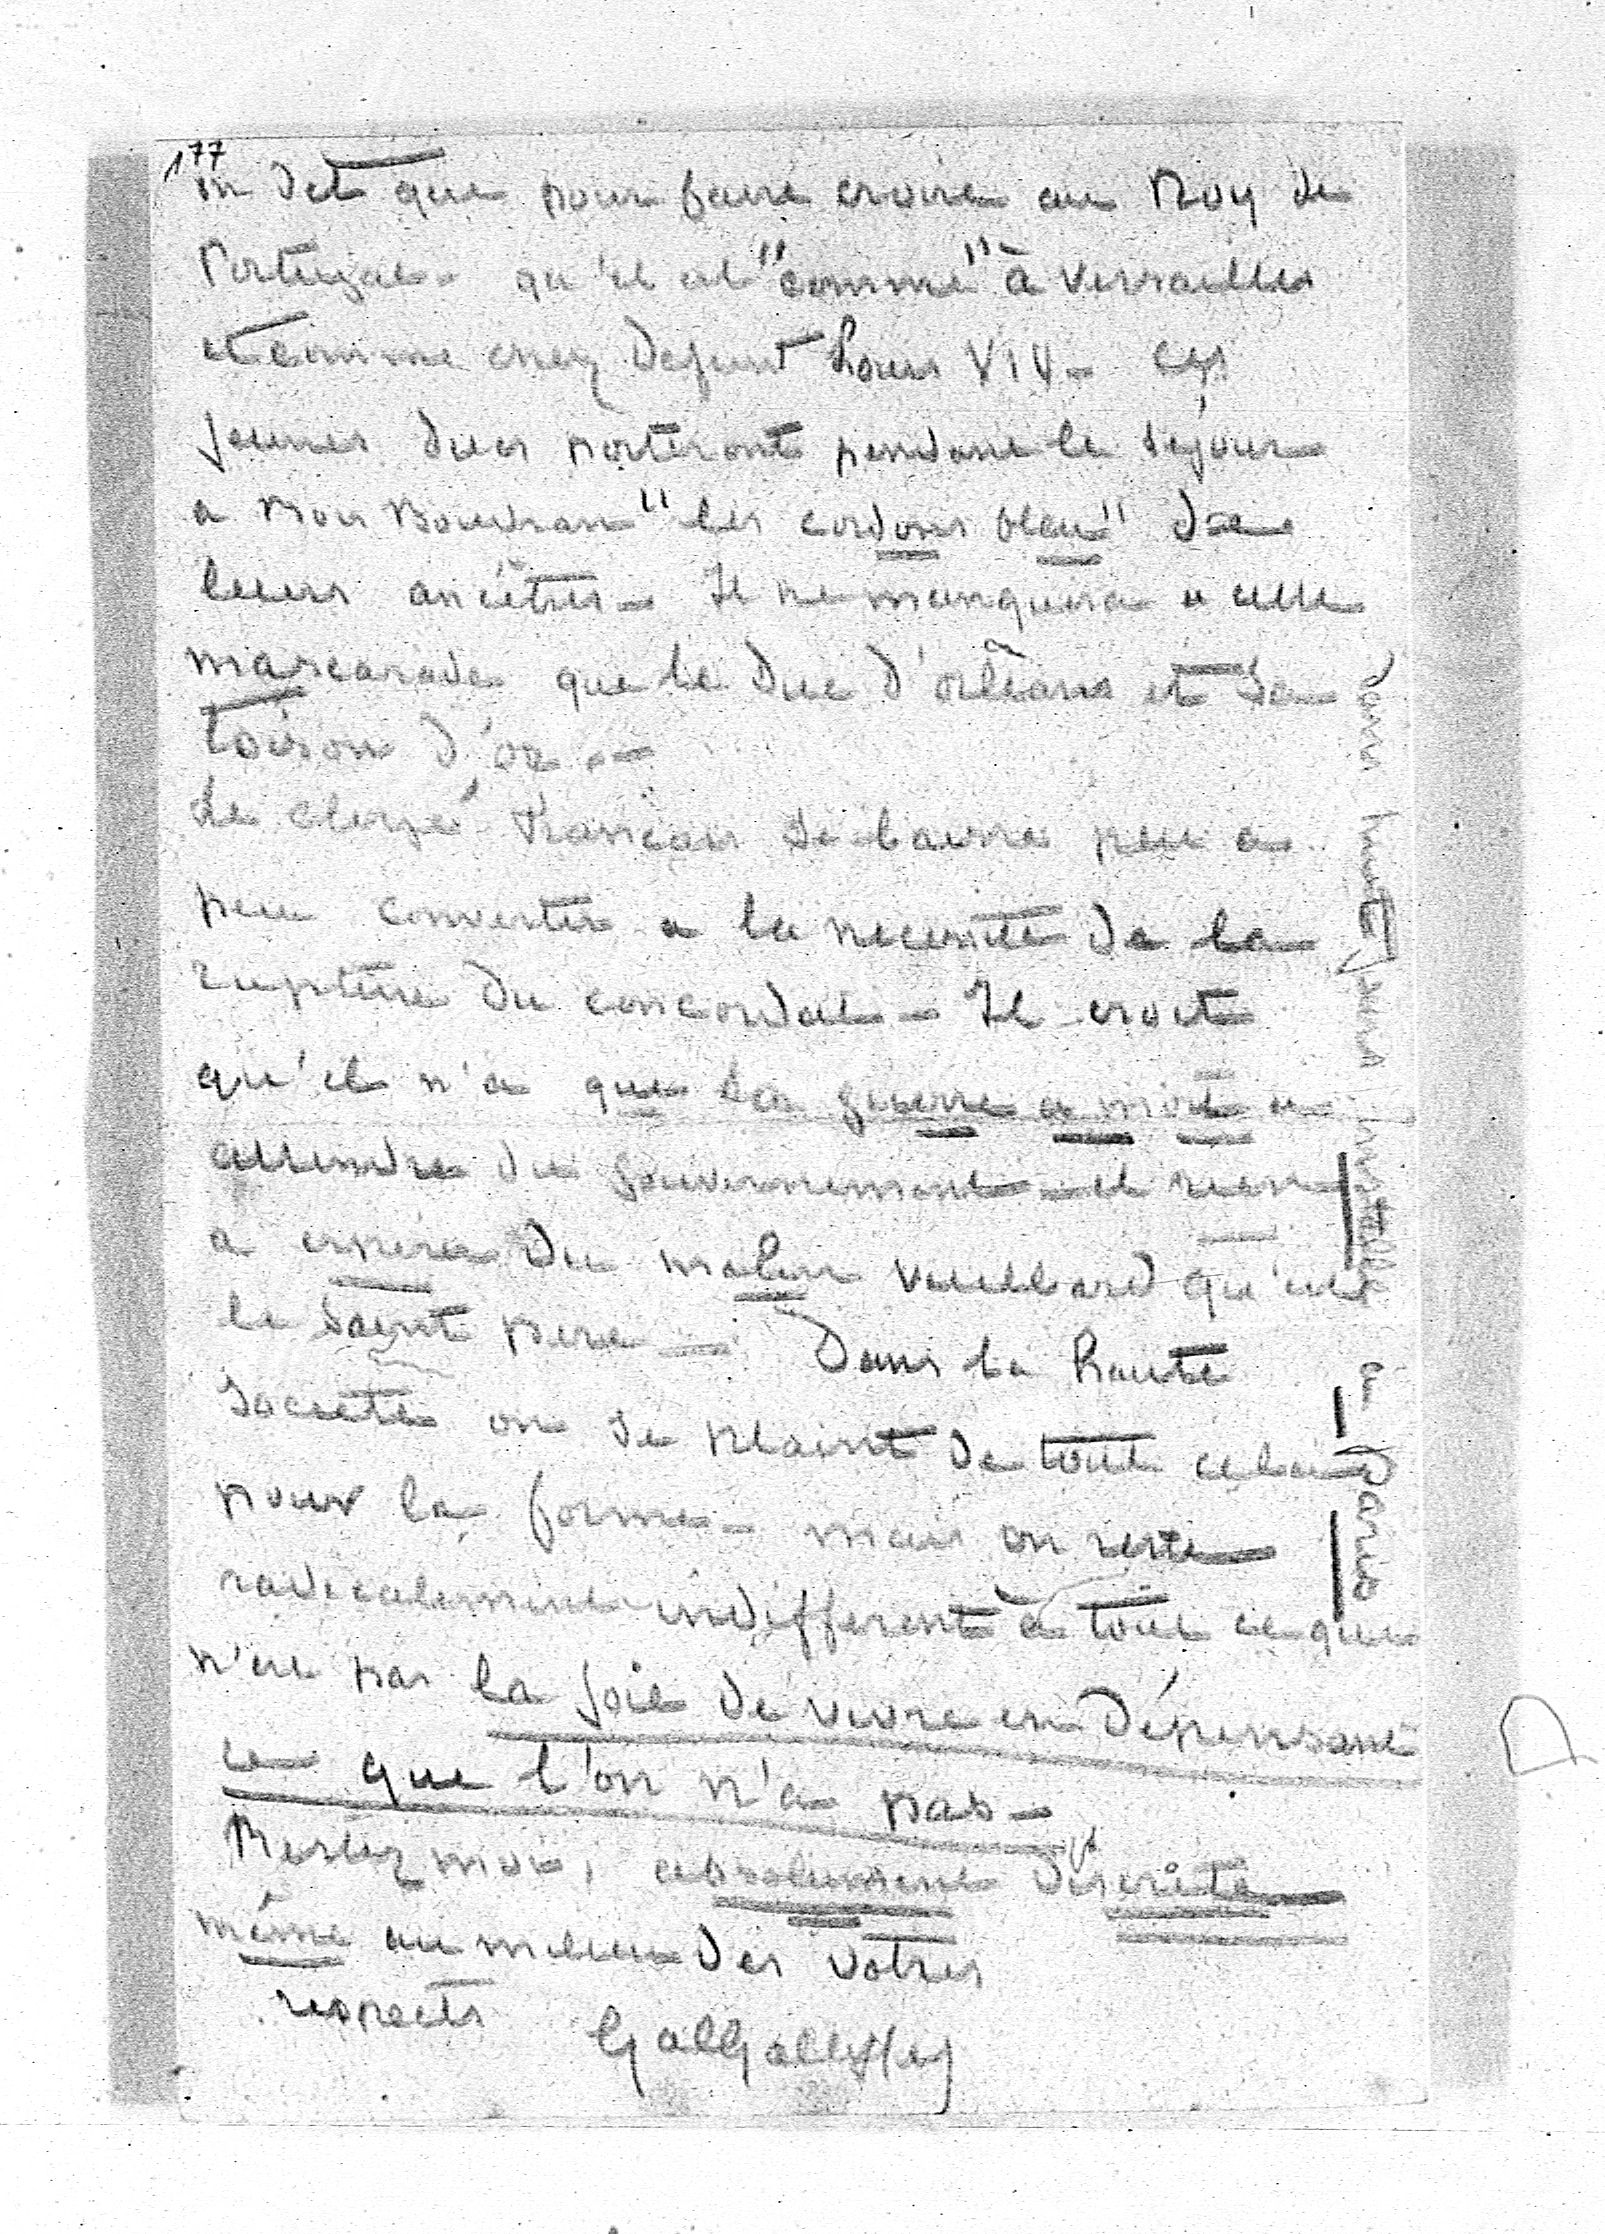 177
on dit que pour faire croire au Roy de
Portugal - qu'il est "comme" à Versailles
et comme chez Defunt Louis XIV - Ces
jeunes ducs porteront pendant le séjour
a "les cordons bleu" de
leurs ancêtres - Il ne manquera a cette
mascarade que le Duc d'orléans et sa
toison d'or. -
Le clergé francais se laisse peu a
peu convertir a la necessité de la
rupture du concordat - Il croit
qu'il n'a que la guerre a mort a
attendre du gouvernement - et rien
a esperer du malin vieillard qu'est
le Saint pere - Dans la haute
Societe on se plaint de tout cela
pour la forme - mais on reste
radicalement indifferent à tout ce qui
n'est pas la joie de vivre en dépensant
ce que l'on n'a pas -
Restez moi, absolument discrète
même au milieu des votres
respects
Gal Galliffet
serai installé à Paris